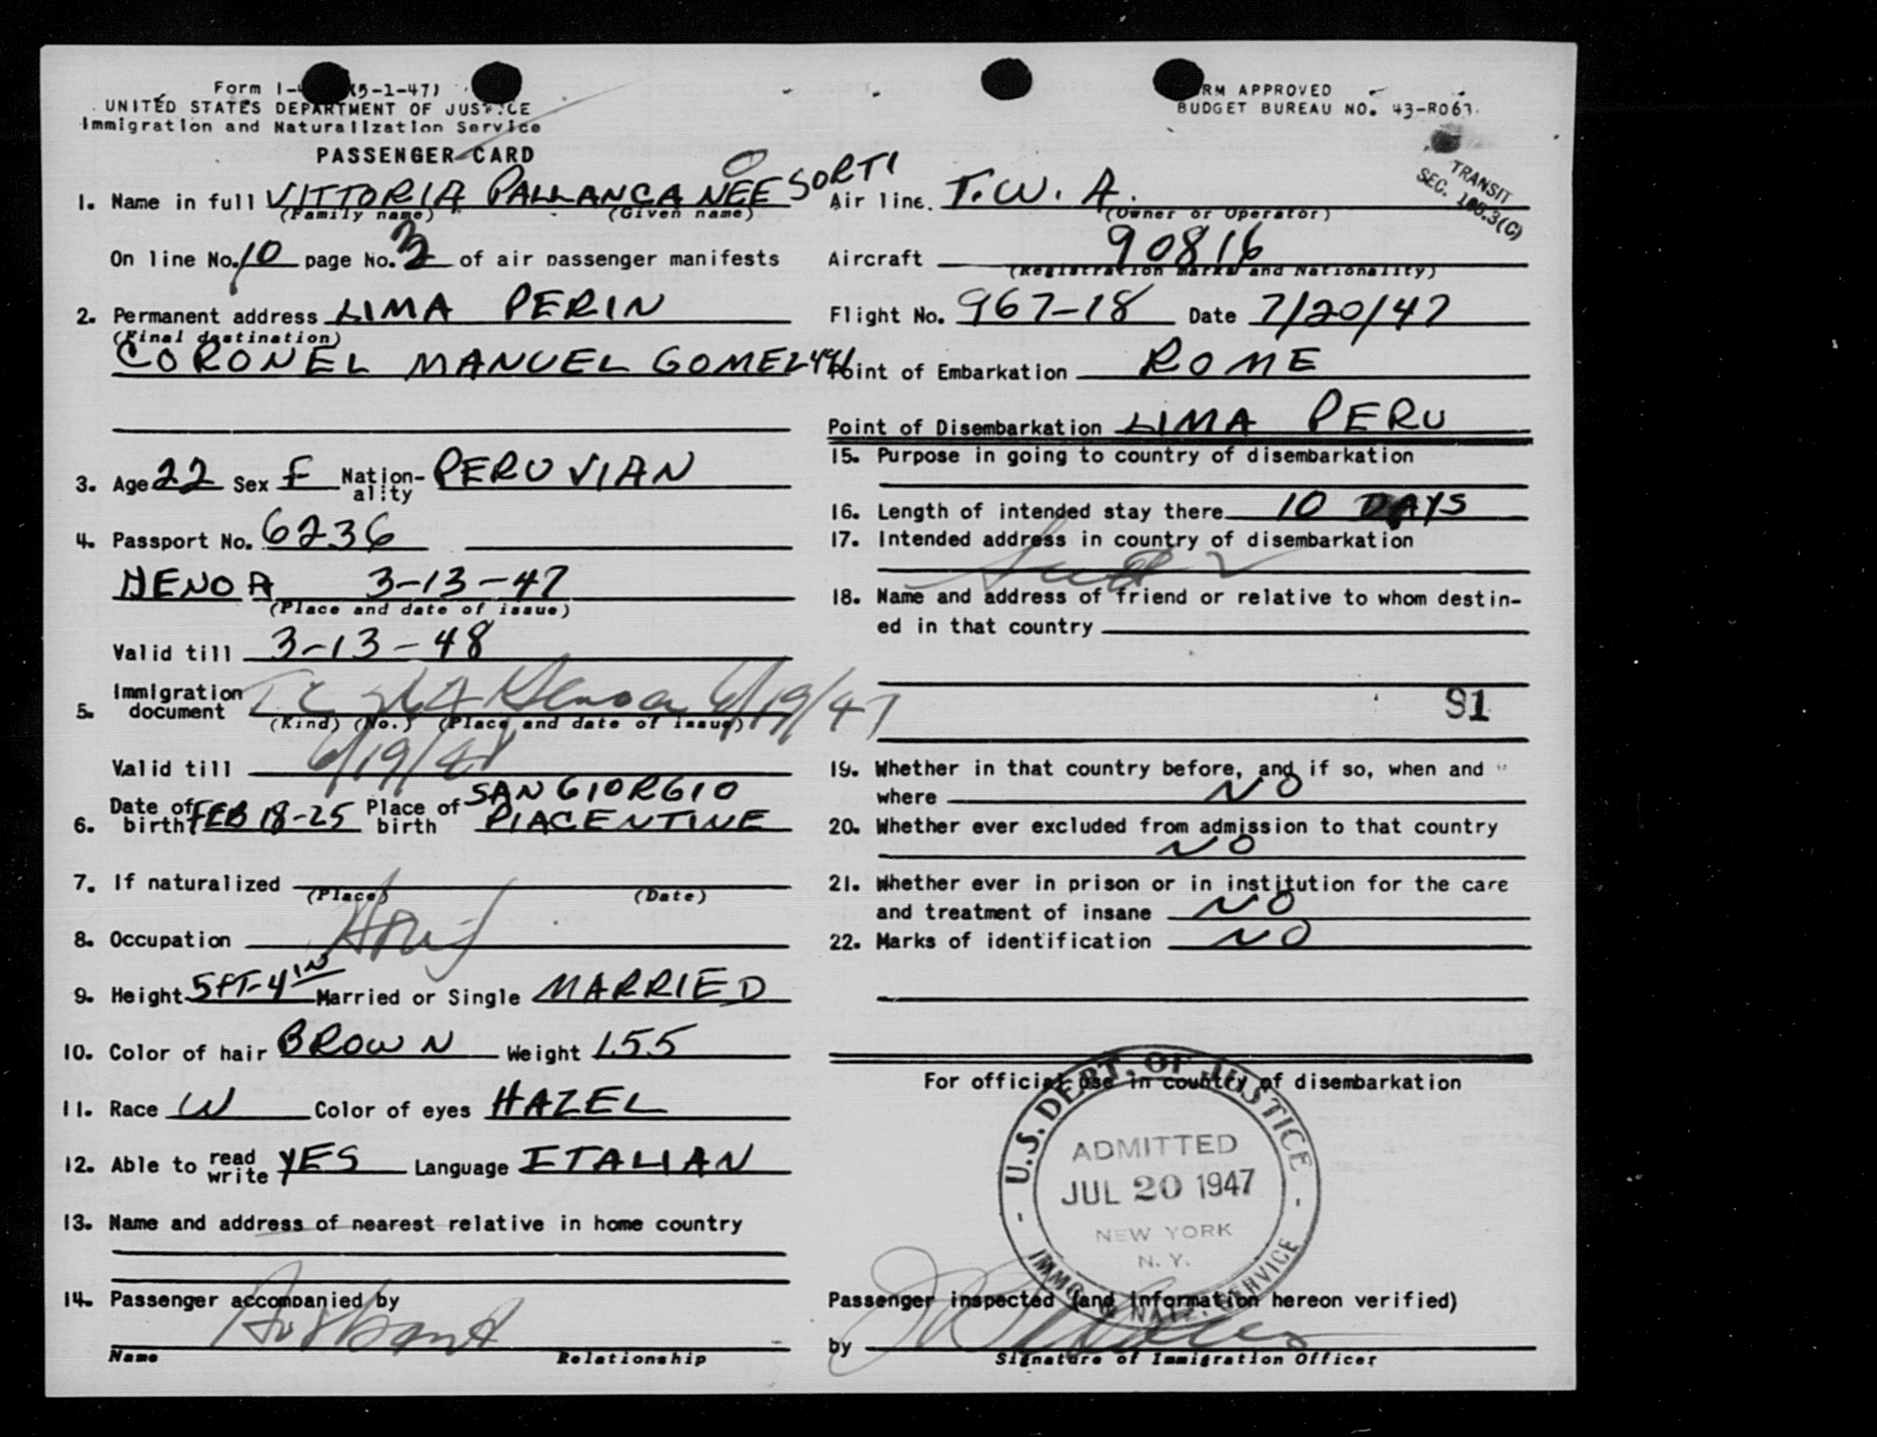 Form I- (5-1-47)
UNITED STATES DEPARTMENT OF JUSTICE
Immigration and Naturalization Service
PASSENGER CARD
FORM APPROVED
BUDGET BUREAU NO. 43-R063.
TRANSIT
SEC. 165.3(C)
1. Name in full VITTORIA PALLANCA NEE SORTI
(Family name) (Given name)
On line No. 10 page No. of air passenger manifests
2. Permanent address LIMA PERIN
(Final destination)
CORONEL MANUEL GOMEZ 446
3. Age 22 Sex F Nation-ality PERUVIAN
4. Passport No. 6236
GENOA 3-13-47
(Place and date of issue)
Valid till 3-13-48
5. Immigration document Genoa 6/19/47
(Kind) (No.) (Place and date of issue)
Valid till 6/19/48
6. Date of birth FEB 18-25 Place of birth SAN GIORGIO PIACENTINE
7. If naturalized
(Place) (Date)
8. Occupation
9. Height 5FT-4IN Married or Single MARRIED
10. Color of hair BROWN Weight 155
11. Race W Color of eyes HAZEL
12. Able to read write YES Language ITALIAN
13. Name and address of nearest relative in home country
14. Passenger accompanied by
Husband
Name Relationship
Air line. T.W.A.
(Owner or Operator)
Aircraft 90816
(Registration marks and Nationality)
Flight No. 967-18 Date 7/20/47
Point of Embarkation ROME
Point of Disembarkation LIMA PERU
15. Purpose in going to country of disembarkation
16. Length of intended stay there 10 DAYS
17. Intended address in country of disembarkation
18. Name and address of friend or relative to whom destin-
ed in that country
91
19. Whether in that country before, and if so, when and
where NO
20. Whether ever excluded from admission to that country
NO
21. Whether ever in prison or in institution for the care
and treatment of insane NO
22. Marks of identification NO
For official use in country of disembarkation
U.S. DEPT. OF JUSTICE
ADMITTED
JUL 20 1947
NEW YORK
N. Y.
IMMG. & NATZ. SERVICE
Passenger inspected (and information hereon verified)
by
Signature of Immigration Officer